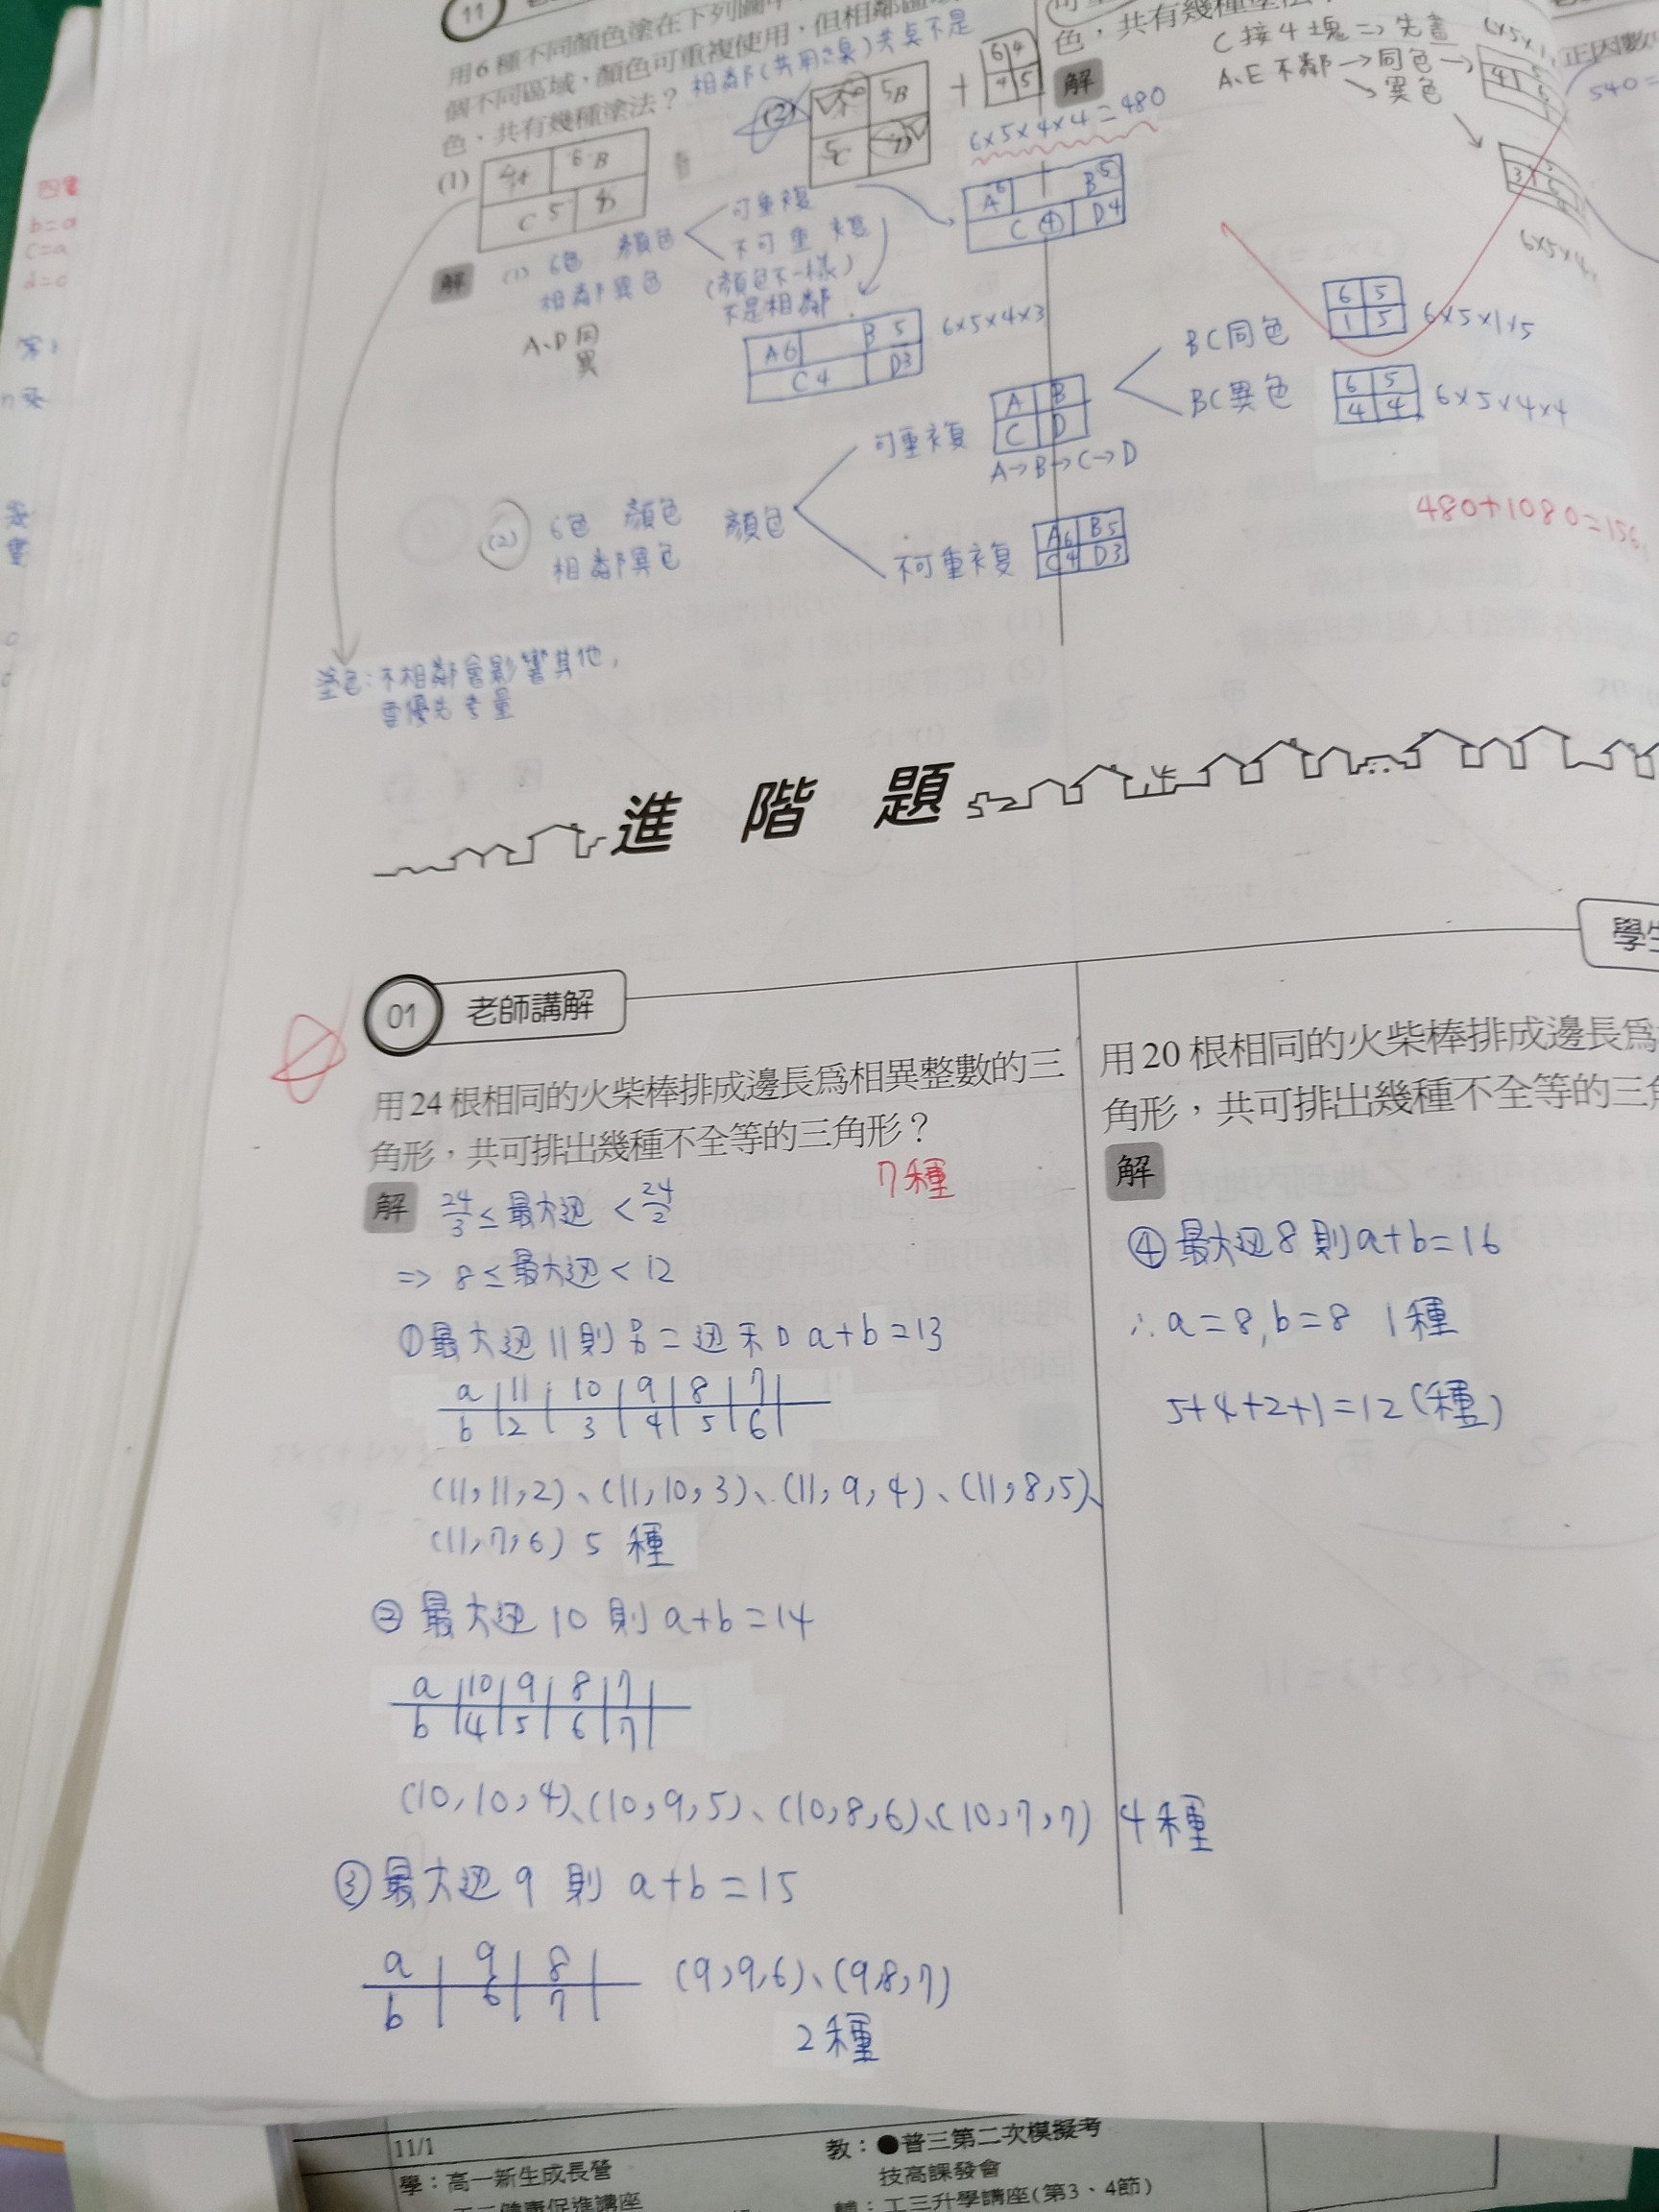 11
用6種不同顏色塗在下列圖中
個不同區域,顏色可重複使用,但相鄰區域
色,共有幾種塗法?
相鄰(共用之桌)共桌不是
(1)
6 B
C 5
(2)
5B
+
6 4
4 5
6×5×4×4=480
解
(1) 6色 顏色
相鄰異色
可重複
不可重複
(顏色不一樣)
不是相鄰
A、D同
異
A6 B 5
C4 D3
6×5×4×3
A6 B5
C④ D4
色,共有幾種塗法
解
C 接4塊⇒先畫
A、E不鄰→同色→
↘異色
正因數
540=
6×5×4×
(2) 6色 顏色
相鄰異色
顏色
可重複
A B
C D
A→B→C→D
BC同色
6 5
1 5
6×5×1×5
BC異色
6 5
4 4
6×5×4×4
不可重複
A6 B5
C4 D3
480+1080=156
塗色:不相鄰會影響其他,
要優先考量
四
b=a
c=a
d=c
進階題
01 老師講解
用24根相同的火柴棒排成邊長為相異整數的三
角形,共可排出幾種不全等的三角形?
7種
解 24/3≤最大边<24/2
⇒ 8≤最大边<12
①最大边11則另二边和 a+b=13
a 11 10 9 8 7
b 2 3 4 5 6
(11,11,2)、(11,10,3)、(11,9,4)、(11,8,5)、
(11,7,6) 5 種
② 最大边 10 則 a+b=14
a 10 9 8 7
b 4 5 6 7
(10,10,4)、(10,9,5)、(10,8,6)、(10,7,7) 4種
③最大边 9 則 a+b=15
a 9 8
b 6 7
(9,9,6)、(9,8,7)
2種
學生
用20根相同的火柴棒排成邊長為
角形,共可排出幾種不全等的三角
解
④最大边8則a+b=16
∴a=8,b=8 1種
5+4+2+1=12(種)
11/1
學:高一新生成長營
教:●普三第二次模擬考
技高課發會
輔:工三升學講座(第3、4節)